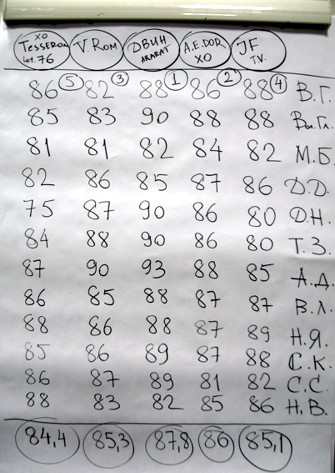 XO TESSERON LOT. 76 V. ROM ДВИН ARARAT A.E. DOR XO JF T.V.
86 5 82 3 88 1 86 2 88 4 В.Г.
85 83 90 88 88 Вл.Гл.
81 81 82 84 82 М.Б.
82 86 85 87 86 Д.D.
75 87 90 86 80 DH.
84 88 90 86 80 Т.З.
87 90 93 88 85 А.Д.
86 85 88 87 87 В.Л.
88 86 88 87 89 Н.Я.
85 86 89 87 88 С.К.
86 87 89 81 82 С.С
88 83 82 85 86 Н.В.
84,4 85,3 87,8 86 85,1